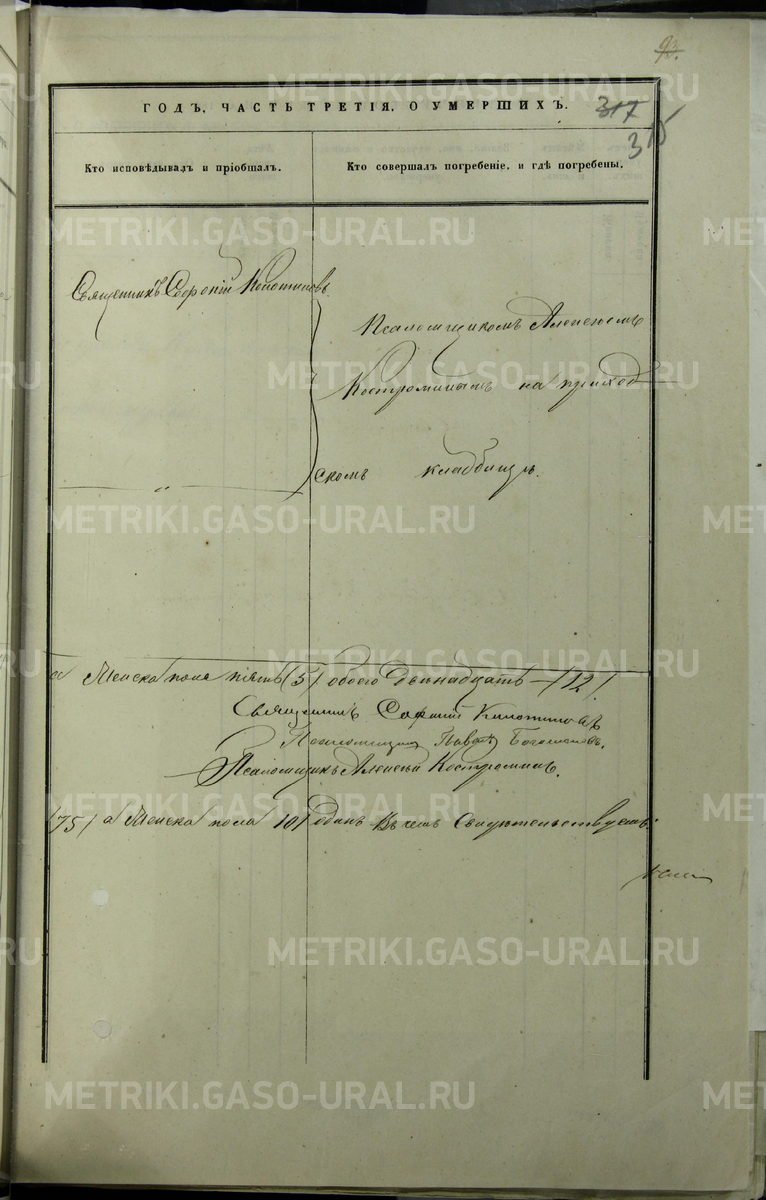 93.
ГОДЪ, ЧАСТЬ ТРЕТІЯ, О УМЕРШИХЪ.
317
315
Кто исповѣдывалъ и пріобщалъ.
Кто совершалъ погребеніе, и гдѣ погребены.
Священникъ Софоній
Псаломщикомъ Алексѣемъ
Костроминымъ на приход
скомъ кладбищѣ.
а Женска пола пять (5) обоего двѣнадцать (12).
Священникъ Софоній
Псаломщикъ Павелъ
Псаломщикъ Алексѣй Костроминъ.
(75) а Женска пола 101 одинъ въ чемъ Свидѣтельствуемъ.
METRIKI.GASO-URAL.RU